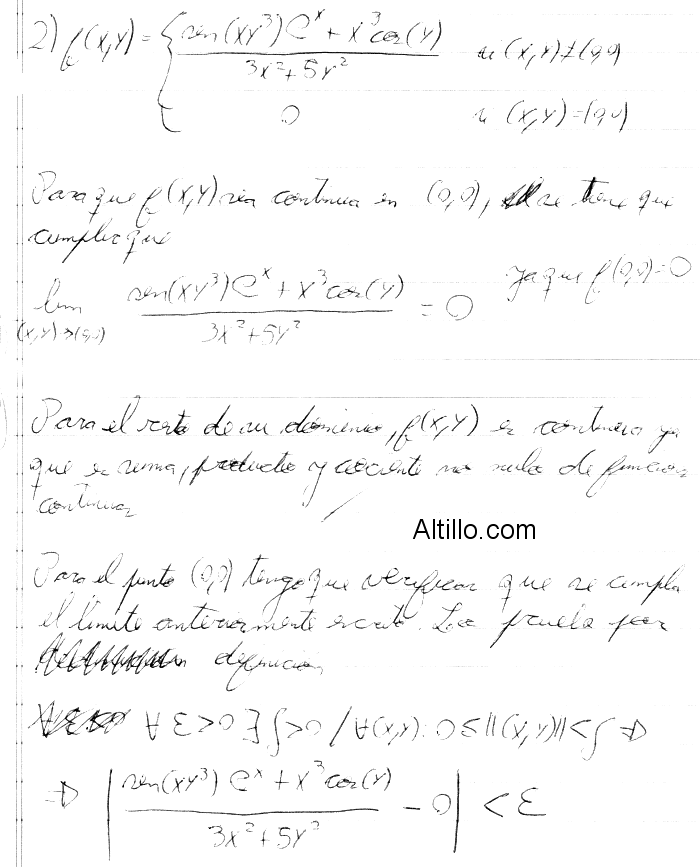 2) f(x,y) = { sen(xy³) e^x + x³ cos(y) / 3x² + 5y² si (x,y) ≠ (0,0)
0 si (x,y) = (0,0)
Para que f(x,y) sea continua en (0,0), se tiene que
cumplir que
lim (x,y)→(0,0) sen(xy³) e^x + x³ cos(y) / 3x² + 5y² = 0 ya que f(0,0) = 0
Para el resto de su dominio, f(x,y) es continua ya
que es suma, producto y cociente no nulo de funciones
continuas
Altillo.com
Para el punto (0,0) tengo que verificar que se cumpla
el límite anteriormente escrito. Lo pruebo por
definición
∀ ε > 0 ∃ δ > 0 / ∀(x,y): 0 ≤ ||(x,y)|| < δ ⇒
⇒ | sen(xy³) e^x + x³ cos(y) / 3x² + 5y² - 0 | < ε